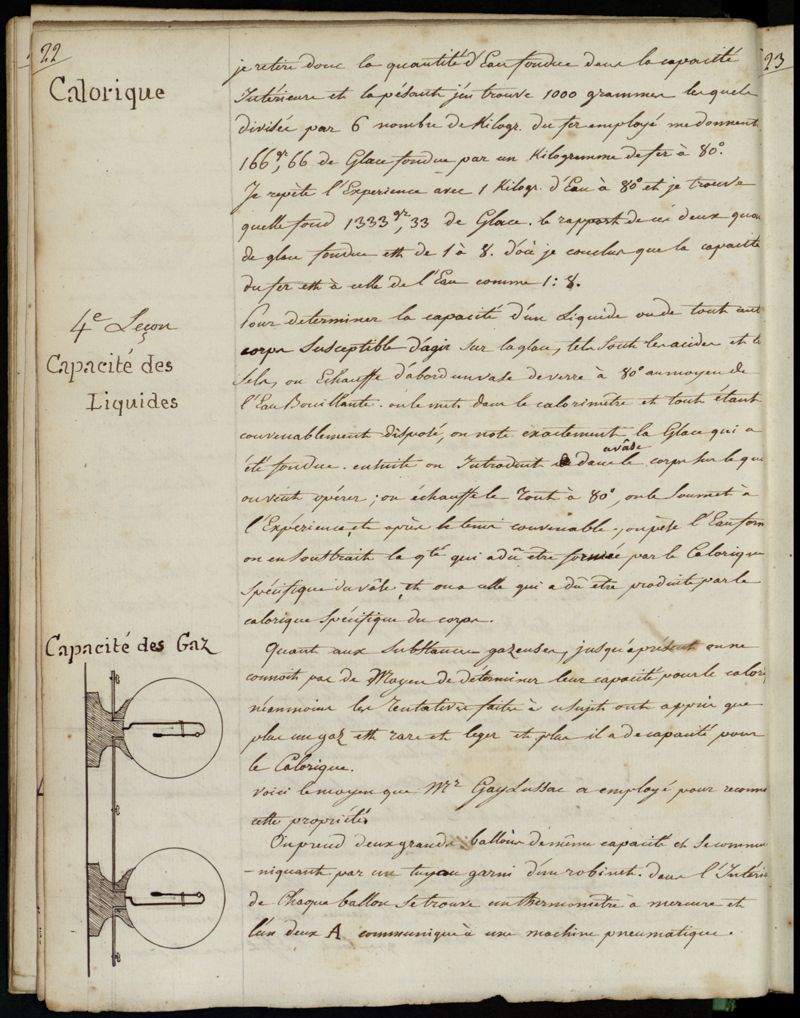 22
23
Calorique
je retire donc la quantité d'Eau fondue dans la capacité
Intérieure et la pésant j'en trouve 1000 grammes lesquels
divisée par 6 nombre de Kilogr. du fer employé me donnent
166gr,66 de Glace fondue par un Kilogramme de fer à 80°.
Je repète l'Experience avec 1 Kilogr. d'Eau à 80° et je trouve
quelle fond 1333gr,33 de Glace. le rapport de ces deux quan
de glace fondue est de 1 à 8. d'où je conclus que la capacité
du fer est à celle de l'Eau comme 1 : 8.
4e Leçon
Capacité des
Liquides
Pour determiner la capacité d'un Liquide ou de tout aut
corps susceptible d'agir sur la glace, tels sont les acides et le
Sels, on Echauffe d'abord un vase de verre à 80° au moyen de
l'Eau Bouillante. on le met dans le calorimètre et tout étant
convenablement disposé, on note exactement la Glace qui a
été fondue. ensuite on Introduit dans le vâse corps sur leque
on veut opérer ; on échauffe le Tout à 80°, on le Soumet à
l'Expérience, et après le tems convenable, on pèse l'Eau form
on en soustrait la qté qui a dû être formée par le Calorique
Spécifique du vâse, et on a celle qui a dû être produite par le
calorique Spécifique du corps.
Capacité des Gaz
Quant aux Substances gazeuses, jusqu'à présent on ne
connoit pas de Moyen de déterminer leur capacité pour le calori
néanmoins les Tentatives faites à ce sujet ont appris que
plus un gaz est rare et leger et plus il a de capacité pour
le Calorique.
Voici le moyen que Mr Gay Lussac a employé pour reconn
cette propriété
On prend deux grands ballons de même capacité et se commu
-niquant par un tuyau garni d'un robinet. dans l'Intéri
de Chaque ballon se trouve un thermomètre à mercure et
l'un deux A communique à une machine pneumatique.